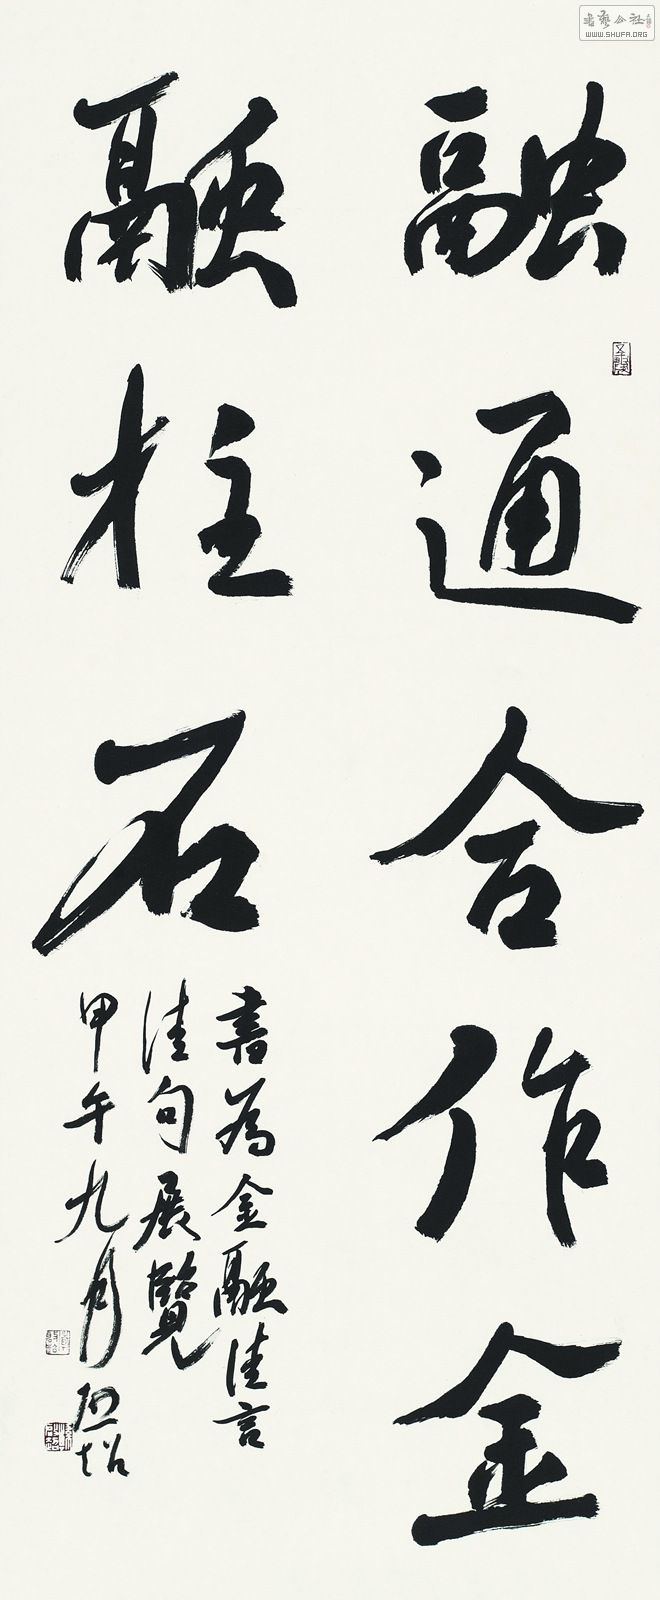 融通合作金
融柱石
書為金融佳言
佳句展覽
甲午九月
書藝公社
WWW.SHUFA.ORG